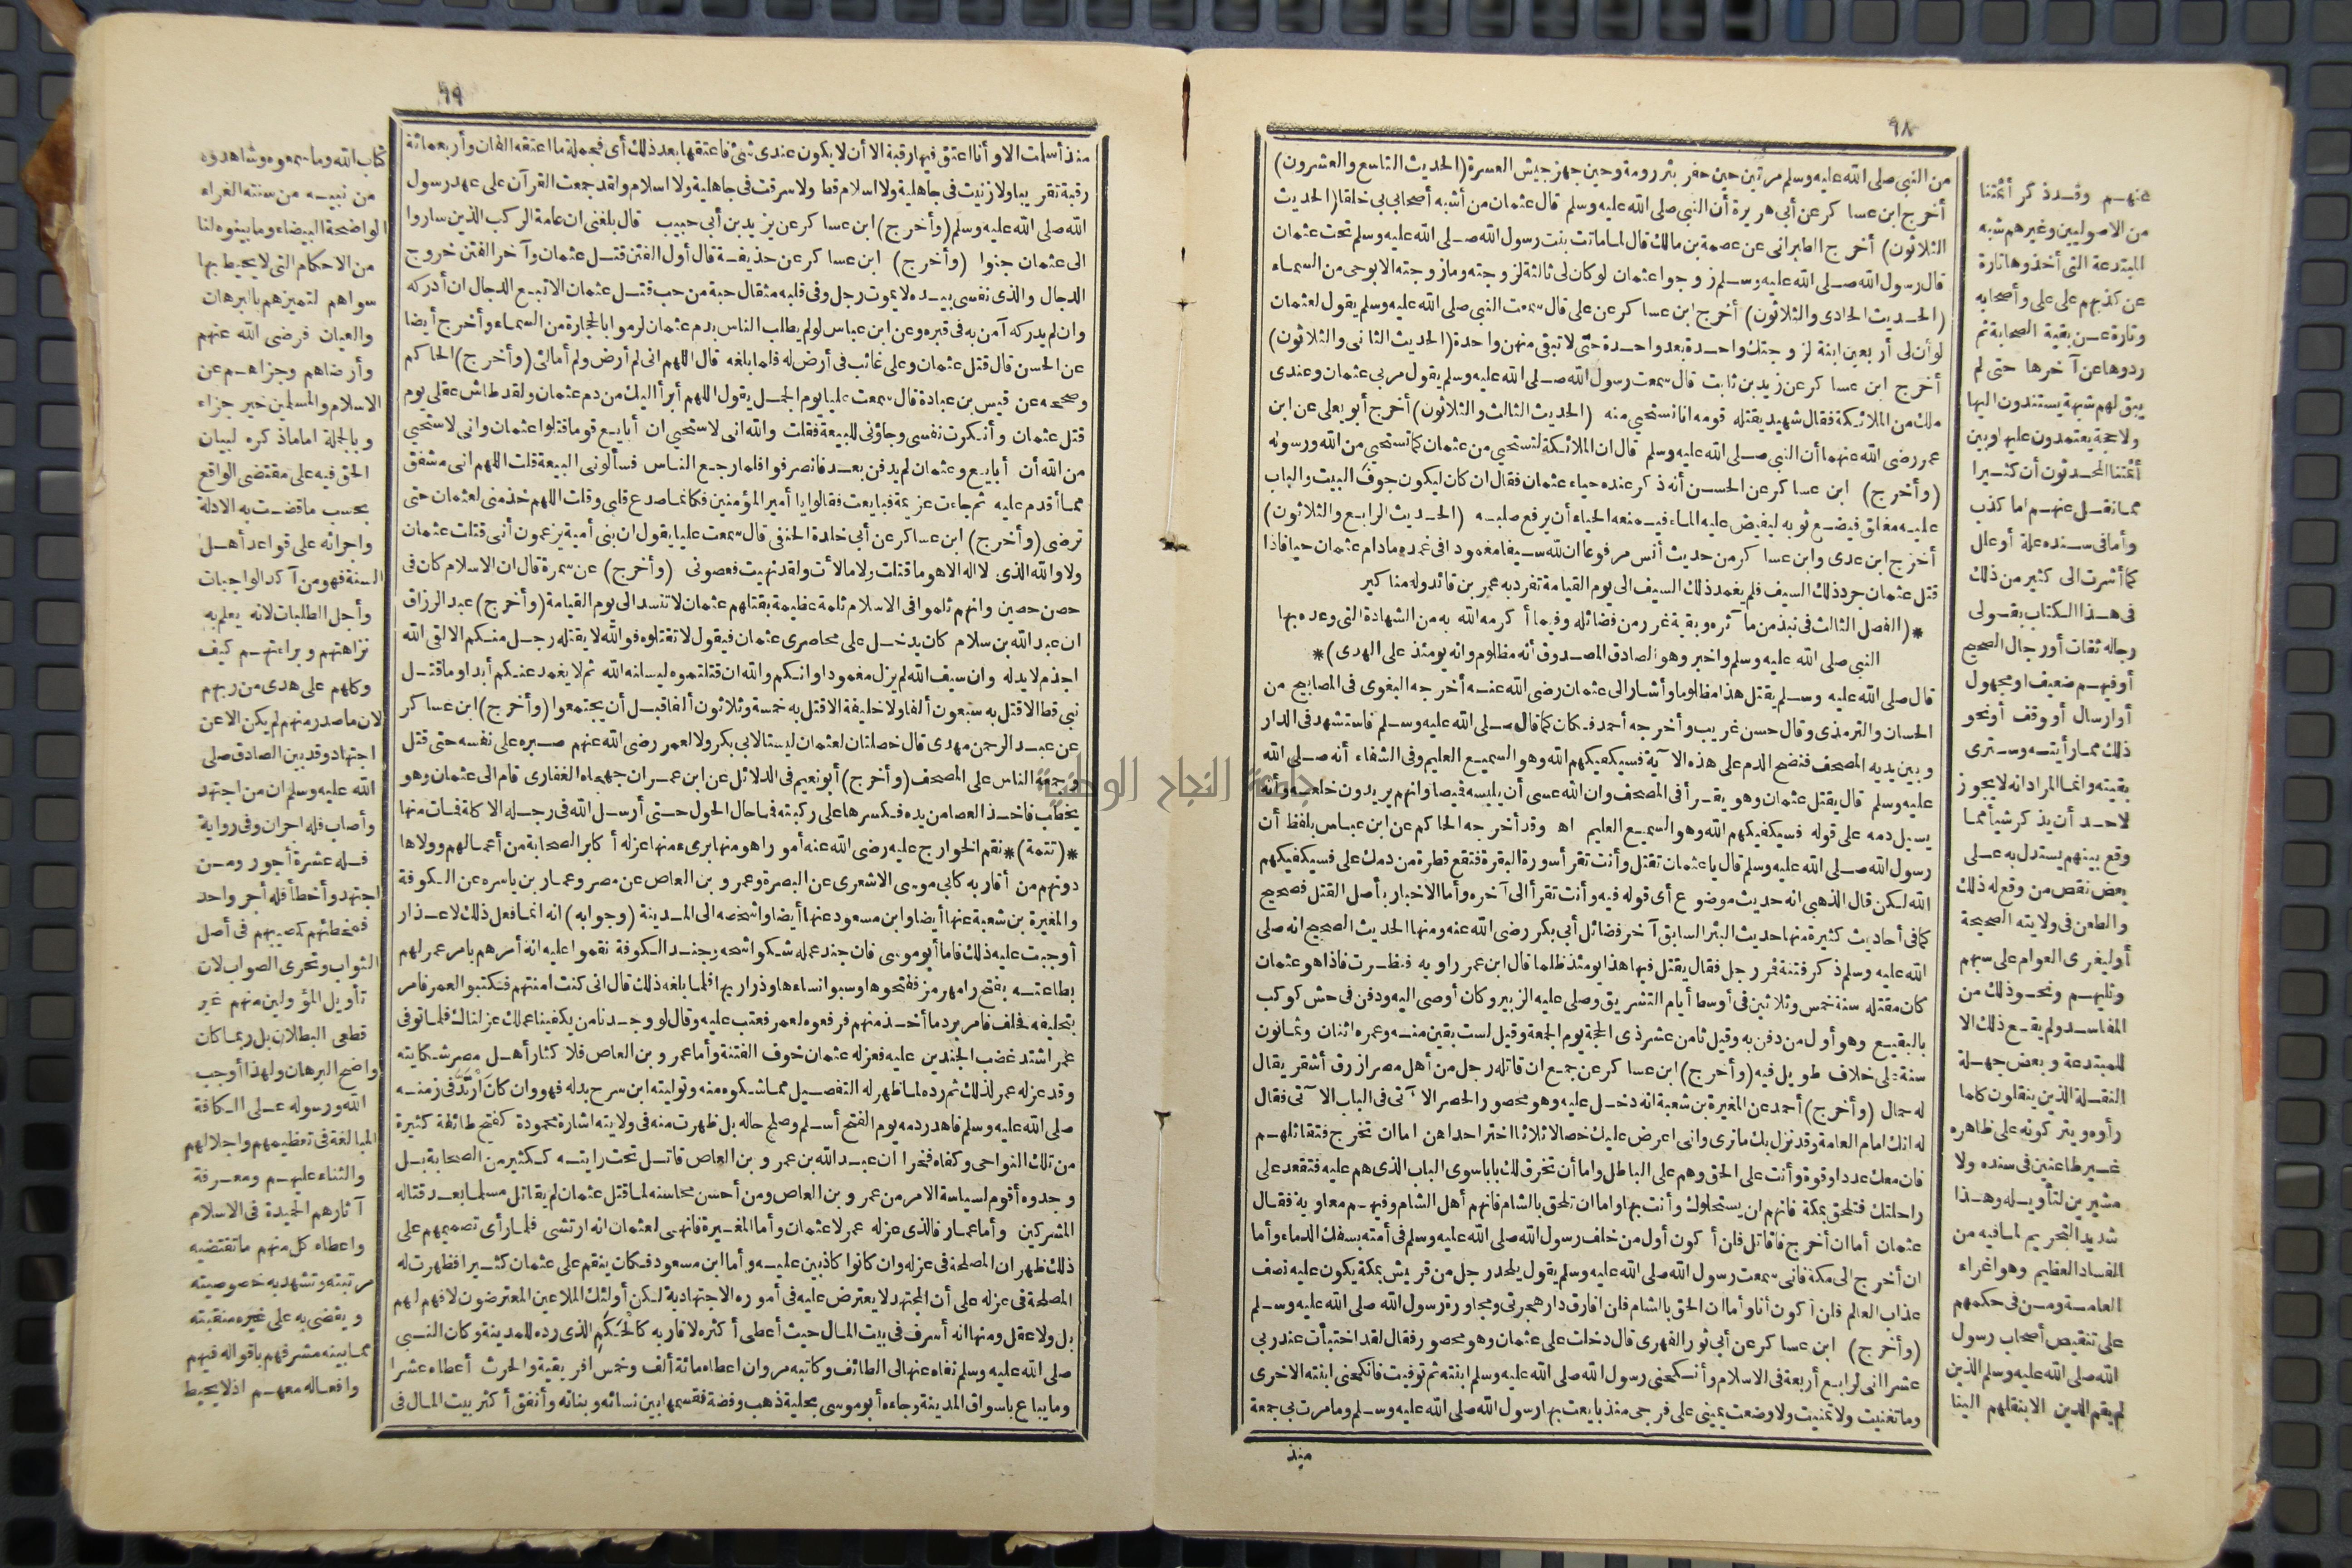 ٩٨
من النبي صلى الله عليه وسلم مرتين حين حفر بئر رومة وحين جهز جيش العسرة (الحديث التاسع والعشرون)
أخرج ابن عساكر عن أبي هريرة أن النبي صلى الله عليه وسلم قال عثمان من أشبه أصحابي بي خلقا (الحديث
الثلاثون) أخرج الطبراني عن عصمة بن مالك قال لما ماتت بنت رسول الله صلى الله عليه وسلم تحت عثمان
قال رسول الله صلى الله عليه وسلم زوجوا عثمان لو كان لي ثالثة لزوجته وما زوجته الا بوحي من السماء
(الحديث الحادي والثلاثون) أخرج ابن عساكر عن علي قال سمعت النبي صلى الله عليه وسلم يقول لعثمان
لو أن لي أربعين ابنة لزوجتك واحدة بعد واحدة حتى لا تبقى منهن واحدة (الحديث الثاني والثلاثون)
أخرج ابن عساكر عن زيد بن ثابت قال سمعت رسول الله صلى الله عليه وسلم يقول مر بي عثمان وعندي
ملك من الملائكة فقال شهيد يقتله قومه انا نستحيي منه (الحديث الثالث والثلاثون) أخرج أبو يعلى عن ابن
عمر رضي الله عنهما أن النبي صلى الله عليه وسلم قال ان الملائكة لتستحيي من عثمان كما تستحيي من الله ورسوله
(وأخرج) ابن عساكر عن الحسن أنه ذكر عنده حياء عثمان فقال ان كان ليكون جوف البيت والباب
عليه مغلق فيضع ثوبه ليفيض عليه الماء فيمنعه الحياء أن يرفع صلبه (الحديث الرابع والثلاثون)
أخرج ابن عدي وابن عساكر من حديث أنس مرفوعا ان لله سيفا مغمودا في غمده مادام عثمان حيا فاذا
قتل عثمان جرد ذلك السيف فلم يغمد ذلك السيف الى يوم القيامة تفرد به عمر بن قائد وله مناكير
*(الفصل الثالث في نبذ من مآثره وبقية غرر من فضائله وفيما أكرمه الله به من الشهادة التي وعده بها
النبي صلى الله عليه وسلم واخبر وهو الصادق المصدوق أنه مظلوم وانه يومئذ على الهدى)*
قال صلى الله عليه وسلم يقتل هذا مظلوما وأشار الى عثمان رضي الله عنه أخرجه البغوي في المصابيح من
الحسان والترمذي وقال حسن غريب وأخرجه أحمد فكان كما قال صلى الله عليه وسلم فاستشهد في الدار
وبين يديه المصحف فنضح الدم على هذه الآية فسيكفيكهم الله وهو السميع العليم وفي الشفاء أنه صلى الله
عليه وسلم قال يقتل عثمان وهو يقرأ في المصحف وان الله عسى أن يلبسه قميصا وانهم يريدون خلعه وأنه
يسيل دمه على قوله فسيكفيكهم الله وهو السميع العليم اه وقد أخرجه الحاكم عن ابن عباس بلفظ أن
رسول الله صلى الله عليه وسلم قال يا عثمان تقتل وأنت تقرأ سورة البقرة فتقع قطرة من دمك على فسيكفيكهم
الله لكن قال الذهبي انه حديث موضوع أي قوله فيه وأنت تقرأ الى آخره وأما الاخبار بأصل القتل فصحيح
كما في أحاديث كثيرة منها حديث البئر السابق آخر فضائل أبي بكر رضي الله عنه ومنها الحديث الصحيح انه صلى
الله عليه وسلم ذكر فتنة فمر رجل فقال يقتل فيها هذا يومئذ ظلما قال ابن عمر راويه فنظرت فاذا هو عثمان
كان مقتله سنة خمس وثلاثين في أوسط أيام التشريق وصلى عليه الزبير وكان أوصى اليه ودفن في حش كوكب
بالبقيع وهو أول من دفن به وقيل ثامن عشر ذي الحجة يوم الجمعة وقيل لست بقين منه وعمره اثنان وثمانون
سنة على خلاف طويل فيه (وأخرج) ابن عساكر عن جمع ان قاتله رجل من أهل مصر ازرق أشقر يقال
له حمال (وأخرج) أحمد عن المغيرة بن شعبة انه دخل عليه وهو محصور الحصر الآتي في الباب الآتي فقال
له انك امام العامة وقد نزل بك ما ترى واني اعرض عليك خصالا ثلاثا اختر احداهن اما ان تخرج فتقاتلهم
فان معك عددا وقوة وأنت على الحق وهم على الباطل واما أن تخرق لك بابا سوى الباب الذي هم عليه فتقعد على
راحلتك فتلحق بمكة فانهم ان يستحلوك وأنت بها واما ان تلحق بالشام فانهم أهل الشام وفيهم معاوية فقال
عثمان أما ان أخرج فاقاتل فلن أكون أول من خلف رسول الله صلى الله عليه وسلم في أمته بسفك الدماء وأما
ان أخرج الى مكة فاني سمعت رسول الله صلى الله عليه وسلم يقول يلحد رجل من قريش بمكة يكون عليه نصف
عذاب العالم فلن أكون أنا وأما ان الحق بالشام فلن افارق دار هجرتي ومجاورة رسول الله صلى الله عليه وسلم
(وأخرج) ابن عساكر عن أبي ثور الفهري قال دخلت على عثمان وهو محصور فقال لقد اختبأت عند ربي
عشرا اني لرابع أربعة في الاسلام وأنكحني رسول الله صلى الله عليه وسلم ابنته ثم توفيت فأنكحني ابنته الاخرى
وما تغنيت ولا تمنيت ولا وضعت يميني على فرجي منذ بايعت بها رسول الله صلى الله عليه وسلم وما مرت بي جمعة
منذ
عنهم وقد ذكر أئمتنا
من الاصوليين وغيرهم شبه
المبتدعة التي أخذوها تارة
عن كذبهم على علي وأصحابه
وتارة عن بقية الصحابة ثم
ردوها عن آخرها حتى لم
يبق لهم شبهة يستندون اليها
ولا حجة يعتمدون عليها وبين
أئمتنا المحدثون أن كثيرا
مما نقل عنهم اما كذب
وأما في سنده علة أو علل
كما أشرت الى كثير من ذلك
في هذا الكتاب بقولي
رجاله ثقات أو رجال الصحيح
أو فيهم ضعيف أو مجهول
أو ارسال أو وقف أو نحو
ذلك مما رأيته وسترى
بقيته وانما المراد انه لا يجوز
لاحد أن يذكر شيأ مما
وقع بينهم يستدل به على
بعض نقص من وقع له ذلك
والطعن في ولايته الصحيحة
أو ليغري العوام على سبهم
وثلبهم ونحو ذلك من
المفاسد ولم يقع ذلك الا
للمبتدعة وبعض جهلة
النقلة الذين ينقلون كلما
رأوه ويتركونه على ظاهره
غير طاعنين في سنده ولا
مشيرين لتأويله وهذا
شديد التحريم لما فيه من
الفساد العظيم وهو اغراء
العامة ومن في حكمهم
على تنقيص أصحاب رسول
الله صلى الله عليه وسلم الذين
لم يقم الدين الا بنقلهم الينا
٩٩
منذ أسلمت الا وأنا اعتق فيها رقبة الا أن لا يكون عندي شئ فاعتقها بعد ذلك أي فجملة ما اعتقه الفان وأربعمائة
رقبة تقريبا ولا زنيت في جاهلية ولا اسلام قط ولا سرقت في جاهلية ولا اسلام ولقد جمعت القرآن على عهد رسول
الله صلى الله عليه وسلم (وأخرج) ابن عساكر عن يزيد بن أبي حبيب قال بلغني ان عامة الركب الذين ساروا
الى عثمان جنوا (وأخرج) ابن عساكر عن حذيفة قال أول الفتن قتل عثمان وآخر الفتن خروج
الدجال والذي نفسي بيده لا يموت رجل وفي قلبه مثقال حبة من حب قتل عثمان الا تبع الدجال ان أدركه
وان لم يدركه آمن به في قبره وعن ابن عباس لو لم يطلب الناس بدم عثمان لرموا بالحجارة من السماء وأخرج أيضا
عن الحسن قال قتل عثمان وعلي غائب في أرض له فلما بلغه قال اللهم اني لم أرض ولم أمالئ (وأخرج) الحاكم
وصححه عن قيس بن عبادة قال سمعت عليا يوم الجمل يقول اللهم أبرأ اليك من دم عثمان ولقد طاش عقلي يوم
قتل عثمان وأنكرت نفسي وجاؤني للبيعة فقلت والله اني لاستحيي ان أبايع قوما قتلوا عثمان واني لاستحيي
من الله أن أبايع وعثمان لم يدفن بعد فانصرفوا فلما رجع الناس فسألوني البيعة قلت اللهم اني مشفق
مما أقدم عليه ثم جاءت عزيمة فبايعت فقالوا يا أمير المؤمنين فكأنما صدع قلبي وقلت اللهم خذ مني لعثمان حتى
ترضى (وأخرج) ابن عساكر عن أبي خلدة الحنفي قال سمعت عليا يقول ان بني أمية يزعمون أني قتلت عثمان
ولا والله الذي لا اله الا هو ما قتلت ولا مالأت ولقد نهيت فعصوني (وأخرج) عن سمرة قال ان الاسلام كان في
حصن حصين وانهم ثلموا في الاسلام ثلمة عظيمة بقتلهم عثمان لا تنسد الى يوم القيامة (وأخرج) عبد الرزاق
ان عبد الله بن سلام كان يدخل على محاصري عثمان فيقول لا تقتلوه فوالله لا يقتله رجل منكم الا لقي الله
اجذم لا يد له وان سيف الله لم يزل مغمودا وانكم والله ان قتلتموه ليسلنه الله ثم لا يغمد عنكم أبدا وما قتل
نبي قط الا قتل به سبعون ألفا ولا خليفة الا قتل به خمسة وثلاثون ألفا قبل أن يجتمعوا (وأخرج) ابن عساكر
عن عبد الرحمن مهدي قال خصلتان لعثمان ليستا لابي بكر ولا لعمر رضي الله عنهم صبره على نفسه حتى قتل
وجمعه الناس على المصحف (وأخرج) أبو نعيم في الدلائل عن ابن عمر ان جهجاه الغفاري قام الى عثمان وهو
يخطب فأخذ العصا من يده فكسرها على ركبته فما حال الحول حتى أرسل الله في رجله الاكلة فمات منها
*(تتمة)* نقم الخوارج عليه رضي الله عنه أمورا هو منها بريء منها عزله أكابر الصحابة من أعمالهم وولاها
دونهم من أقاربه كأبي موسى الاشعري عن البصرة وعمرو بن العاص عن مصر وعمار بن ياسر عن الكوفة
والمغيرة بن شعبة عنها أيضا وابن مسعود عنها أيضا واشخصه الى المدينة (وجوابه) انه انما فعل ذلك لاعذار
أوجبت عليه ذلك فاما أبو موسى فان جند عمله شكوا شحه وجند الكوفة نقموا عليه انه أمرهم بامر عمر لهم
بطاعته بفتح رامهرمز ففتحوها وسبوا نساءها وذراريها فلما بلغه ذلك قال اني كنت امنتهم فكتبوا لعمر فأمر
بتحليفه فحلف فأمر برد ما أخذ منهم فرفعوه لعمر فعتب عليه وقال لو وجدنا من يكفينا عملك عزلناك فلما توفى
عمر اشتد غضب الجندين عليه فعزله عثمان خوف الفتنة وأما عمرو بن العاص فلاكثار أهل مصر شكايته
وقد عزله عمر لذلك ثم رده لما ظهر له التفصيل مما شكوه منه وتوليته ابن سرح بدله فهو وان كان ارتد في زمنه
صلى الله عليه وسلم فاهدر دمه يوم الفتح أسلم وصلح حاله بل ظهرت منه في ولايته اشارة محمودة كفتح طائفة كثيرة
من تلك النواحي وكفاه فخرا ان عبد الله بن عمرو بن العاص قاتل تحت رايته ككثير من الصحابة بل
وجدوه أقوم لسياسة الامر من عمرو بن العاص ومن أحسن محاسنه لما قتل عثمان لم يقاتل مسلما بعد قتاله
المشركين وأما عمار فالذي عزله عمر لا عثمان وأما المغيرة فانهى لعثمان انه ارتشى فلما رأى تصميمهم على
ذلك ظهر ان المصلحة في عزله وان كانوا كاذبين عليه وأما ابن مسعود فكان ينقم على عثمان كثيرا فظهرت له
المصلحة في عزله على أن المجتهد لا يعترض عليه في أموره الاجتهادية لكن أولئك الملاعين المعترضون لا فهم لهم
بل ولا عقل ومنها انه أسرف في بيت المال حيث أعطى أكثره لاقاربه كالحكم الذي رده للمدينة وكان النبي
صلى الله عليه وسلم نفاه عنها الى الطائف وكاتبه مروان اعطاه مائة ألف وخمس افريقية والحرث أعطاه عشرا
وما يباع باسواق المدينة وجاءه أبو موسى بحلية ذهب وفضة فقسمها بين نسائه وبناته وأنفق أكثر بيت المال في
كتاب الله وما سمعوه وشاهدوه
من نبيه من سنته الغراء
الواضحة البيضاء وما بينوه لنا
من الاحكام التي لا يحيط بها
سواهم لتميزهم بالبرهان
والعيان فرضي الله عنهم
وأرضاهم وجزاهم عن
الاسلام والمسلمين خير جزاء
وبالجملة اما ماذكره لبيان
الحق فيه على مقتضى الواقع
بحسب ما قضت به الادلة
واجرائه على قواعد أهل
السنة فهو من آكد الواجبات
وأجل الطلبات لانه يعلم به
نزاهتهم وبراءتهم كيف
وكلهم على هدى من ربهم
لان ما صدر منهم لم يكن الا عن
اجتهاد وقد بين الصادق صلى
الله عليه وسلم ان من اجتهد
وأصاب فله اجران وفي رواية
فله عشرة أجور ومن
اجتهد وأخطأ فله أجر واحد
فمخطئهم كمصيبهم في أصل
الثواب وتحرى الصواب لان
تأويل المؤولين منهم غير
قطعي البطلان بل ربما كان
واضح البرهان ولهذا أوجب
الله ورسوله على الكافة
المبالغة في تعظيمهم واجلالهم
والثناء عليهم ومعرفة
آثارهم الحميدة في الاسلام
واعطاء كل منهم ما تقتضيه
مرتبته وتشهد به خصوصيته
ويقضي به على غيره منقبته
مما بينه مشرفهم باقواله فيهم
وافعاله معهم اذ لا يحيط
جامعة النجاح الوطنية